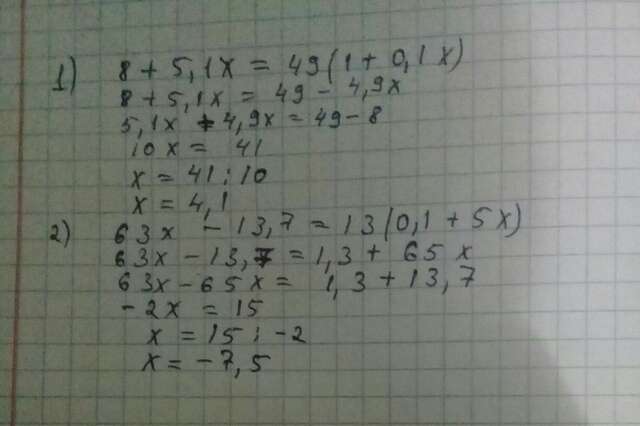 1) 8 + 5,1x = 49(1 + 0,1x)
8 + 5,1x = 49 - 4,9x
5,1x + 4,9x = 49 - 8
10x = 41
x = 41 : 10
x = 4,1
2) 63x - 13,7 = 13(0,1 + 5x)
63x - 13,7 = 1,3 + 65x
63x - 65x = 1,3 + 13,7
-2x = 15
x = 15 : -2
x = -7,5